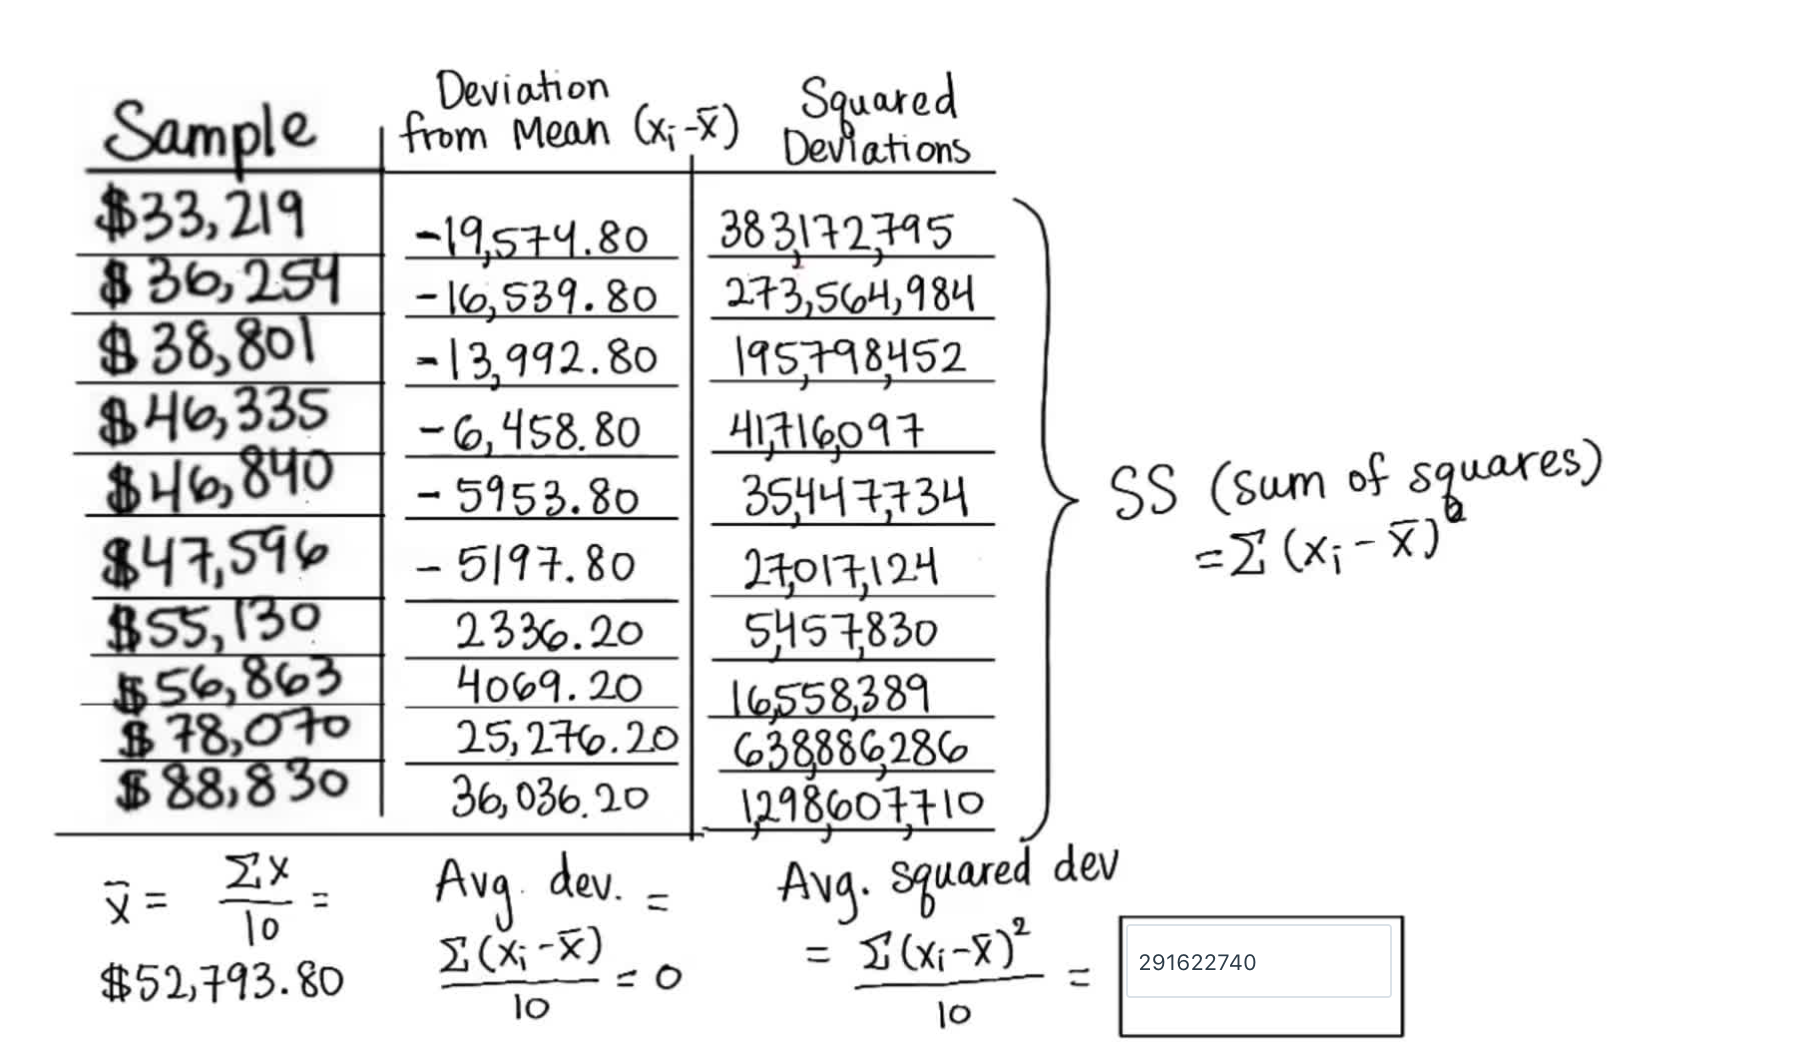 Sample
Deviation
from Mean (xᵢ-x̄)
Squared
Deviations
$33,219 -19,574.80 383,172,795
$36,254 -16,539.80 273,564,984
$38,801 -13,992.80 195,798,452
$46,335 -6,458.80 41,716,097
$46,840 -5953.80 35,447,734
$47,596 -5197.80 27,017,124
$55,130 2336.20 5,457,830
$56,863 4069.20 16,558,389
$78,070 25,276.20 638,886,286
$88,830 36,036.20 1,298,607,710
SS (sum of squares)
=Σ(xᵢ-x̄)²
x̄ = Σx/10 =
$52,793.80
Avg. dev. =
Σ(xᵢ-x̄)/10 = 0
Avg. squared dev
= Σ(xᵢ-x̄)²/10 = 291622740